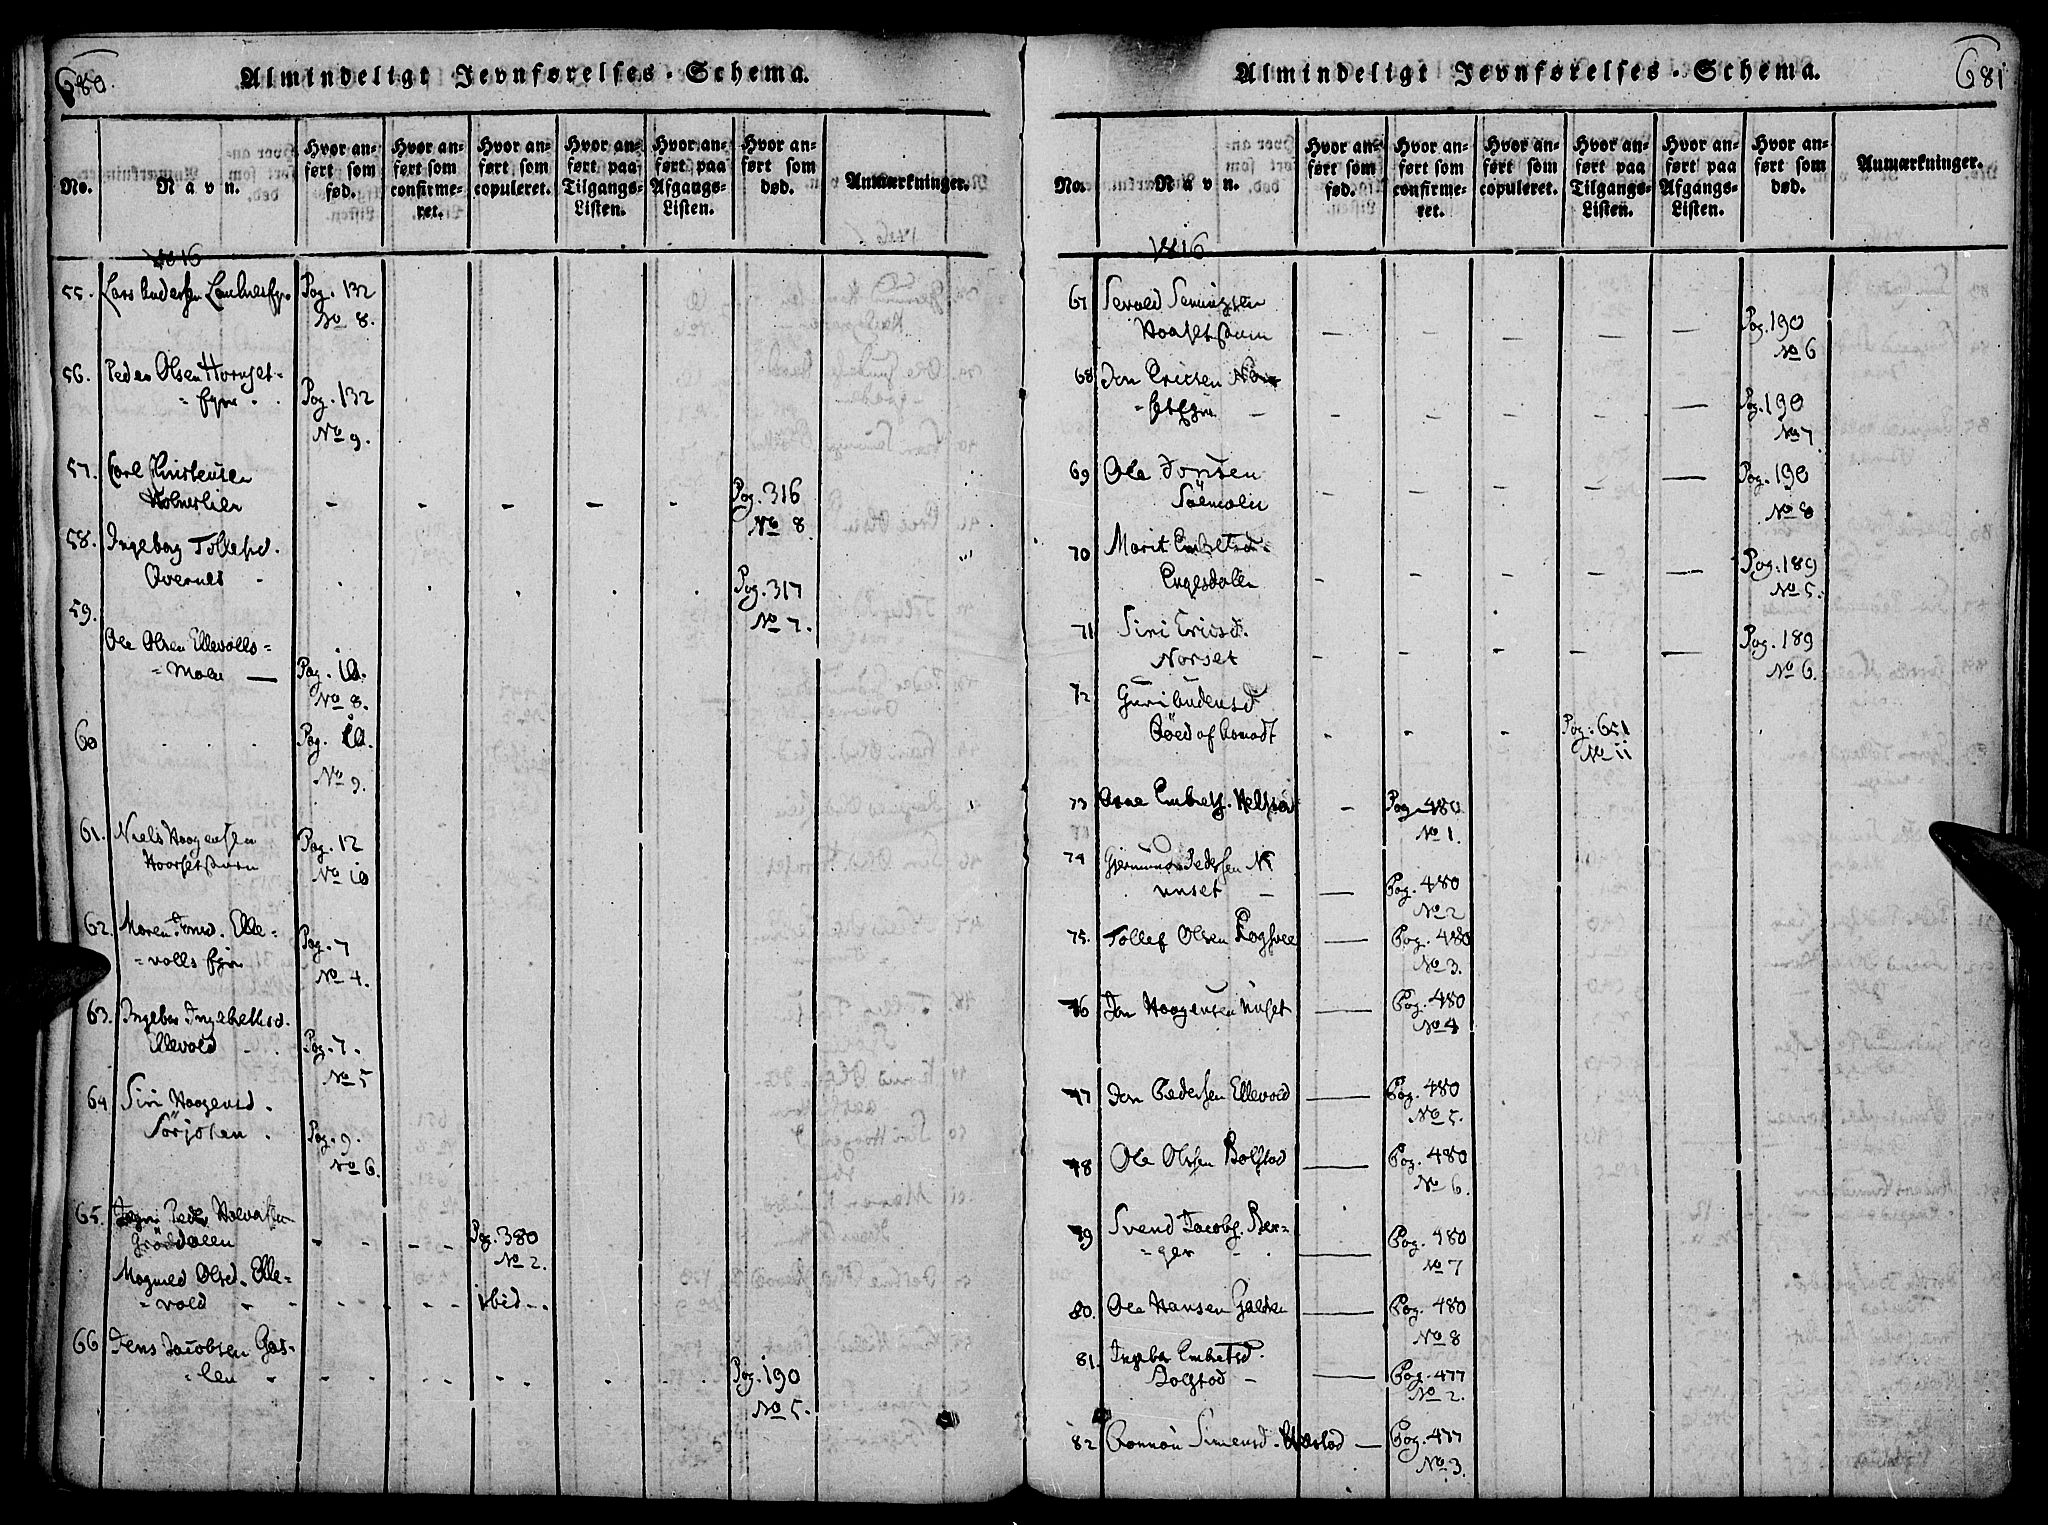 680.
Almindeligt Jevnførelses-Schema.
No.
Navn.
Hvor anført som fød.
Hvor anført som confirmeret.
Hvor anført som copuleret.
Hvor anført paa Tilgangs-Listen.
Hvor anført paa Afgangs-Listen.
Hvor anført som død.
Anmærkninger.
1816
55. Lars Andersen Pag. 132
No 8.
56. Peder Olsen Hornset-
Pag. 132
No 9.
57. Carl Christensen
Holmerlien - - - - - Pag. 316
No 8.
58. Ingebor Tollefsd.
Øvernes Pag. 317
No 7.
59.
Ole Olsen Ellevolls-
=Moen — Pag. 12.
No 8.
60 Pag. 12.
No 9.
61. Niels Haagensen Pag. 12
No 10
62. Maren Jensd. Elle-
=volls Pag. 7
No 4.
63. Ingebor Ingebrethsd.
Ellevold Pag. 7.
No 5
64 Siri Haagensd.
Sørjoten. Pag. 9.
No 6.
65. Peders
Pag. 380
No 2.
Magnild Olsd. Elle-
=vold ibid.
66 Jens Jacobsen Gas-
=len Pag. 190
No 5.
681
Almindeligt Jevnførelses-Schema.
No.
Navn.
Hvor anført som fød.
Hvor anført som confirmeret.
Hvor anført som copuleret.
Hvor anført paa Tilgangs-Listen.
Hvor anført paa Afgangs-Listen.
Hvor anført som død.
Anmærkninger.
1816
67
- - - - - Pag. 190
No 6
68 Jon Ericsen
- - - - - Pag. 190
No 7
69 Ole Jonsen
- - - - - Pag. 190
No 8
70 Marit Embretsd.
Engesdalen - - - - - Pag. 189
No 5.
71 Siri Ericsd.
Norset - - - - - Pag. 189
No 6.
72 Guri Andersd.
- - - Pag. 651
No 11
73 Arne Embrets. - Pag. 480
No 1.
74 Gjermund Pedersen N
unset — Pag. 480
No 2
75. Tollef Olsen — Pag. 480
No 3.
76 Jon Haagensen — Pag. 480
No 4
77 Jon Pedersen Ellevold — Pag. 480
No 5.
78 Ole Olsen Bolstad — Pag. 480
No 6.
79 Svend Jacobs. Ber-
=ger — Pag. 480
No 7
80. Ole Hansen Galten — Pag. 480
No 8
81. Ingebor Embretsd.
Bolstad — Pag. 477
No 2.
82 Simensd. — Pag. 477
No 3.